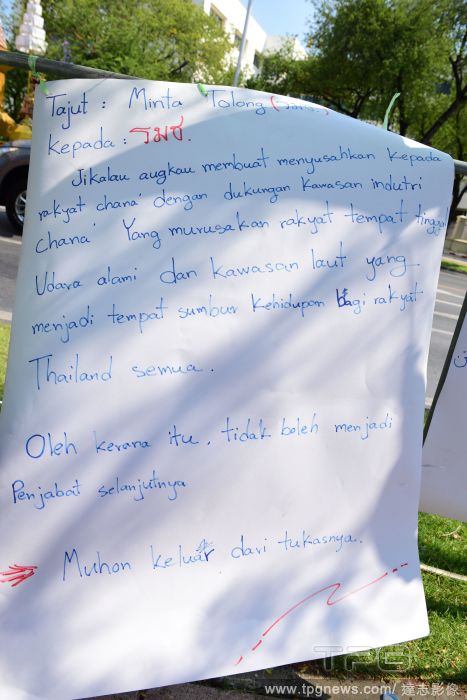 Tajut : Minta Tolong (
Kepada : รมช.
Jikalau augkau membuat menyusahkan kepada
rakyat chana' dengan dukungan kawasan indutri
chana' Yang murusakan rakyat tempat tinggal
Udara alami dan kawasan laut yang
menjadi tempat sumbur kehidupan bagi rakyat
Thailand semua.
Oleh kerana itu, tidak boleh menjadi
Penjabat selanjutnya
Muhon keluar dari tukasnya.
TPG
www.tpgnews.com/ 達志影像